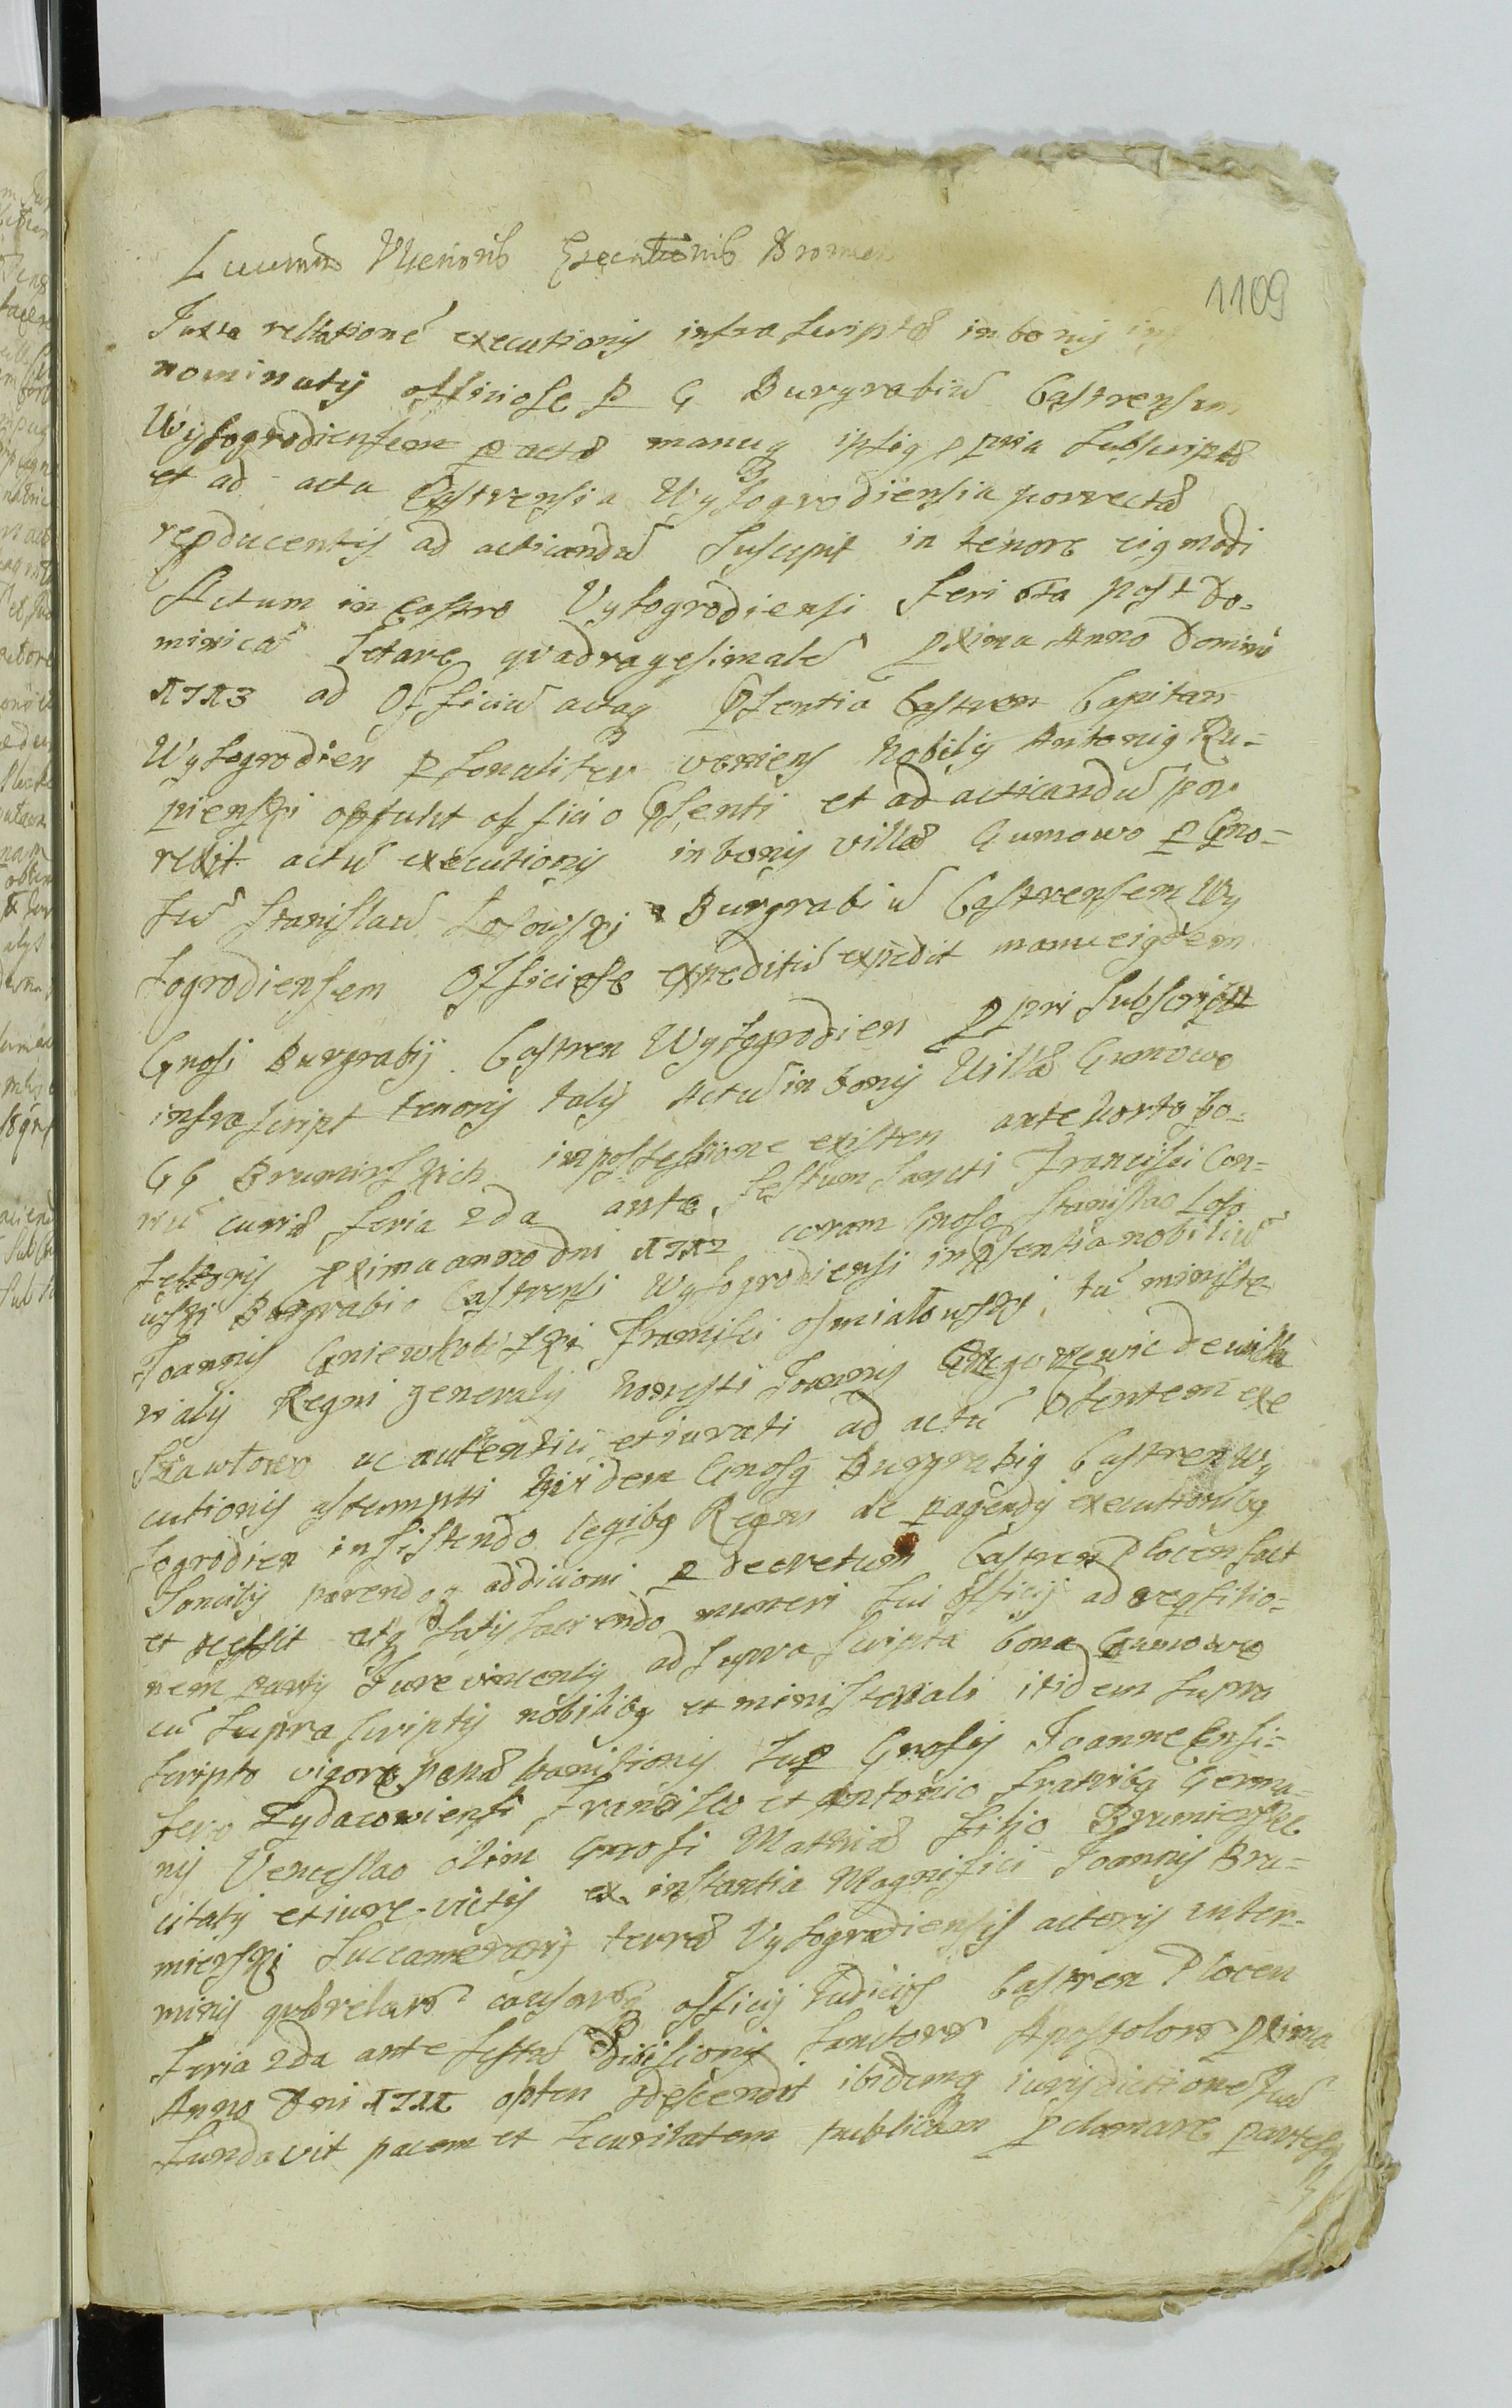 1109
Juxta relationē executionis infra scriptæ in bonis
nominatis officiose p G Burgrabiū Castrensem
Wyſogrodiensem pactæ manuq ipsiq ppria subscriptæ
et ad acta Castrensia Wyſogrodiensia porrectæ
repducentis ad acticandū suscepit in tenore eiq modi
Actum in Castro Vyſogrodiensi feri 6ta post Do-
minicā letare quadragesimalē pxima Anno Domini
1713 ad Officiū actaq pſentia Castren Capitan
Wyſogrodien pſonaliter veniens Nobilis Antoniq Ru-
pienſki optulit officio pſenti et ad acticandū por
rexit actū executionis in bonis villæ Gumowo p Gno-
sū Stanislaū Loſowſki Burgrabiū Castrensem Wy
ſogrodiensem Officiose expeditū expedit manu eiqdem
Gnosi Burgrabij Castren Wyſogrodien p ppri subscript
infrascript tenoris talis Actū in bonis Villæ Gumowo
GG Brumirſkich in possessione existen ante horto bo-
nū curiæ feria 2da ante festum Sancti Francisci Con-
fessoris pxima anno dni 1712 coram Gnoso Stanislao Loſo
wſki Burgrabio Castrensi Wyſogrodiensi in pſentia nobiliū
Joannis Gniewkotſki Francisci oſmiałowſki tū ministe
rialis Regni generalis honesti Joannis de villa
ac autentici et iurati ad actū pſentem exe
cutionis assumpti itidem Gnosq Burgrabiq Castren Wy
ſogrodien insistendo legibq Regni de pagendis executionibq
Sancitis parendoq addicioni p decretum Castren Plocen fact
et accessit atq satisfaciendo muneri sui officij ad reqsitio-
nem partis Jure vincentis ad suprascripta bona Gumowo
cū suprascriptis nobilibq et ministeriali itidem supra
scripto vigore pœnæ banitionis sup Gnosis Joanne Ensi-
fero Zydaczoviensi Francisco et Antonio fratribq Germa-
nis Venceslao olim Gnosi Mathiæ filio Brumierſkie
citatis et iure victis ex instantia Magnifici Joannis Bru-
mierſki Succamerarij terræ Vyſogrodiensis actoris in ter-
minis qværelarū causarūq officij Judicis Castren Plocen
feria 2da ante festū Divisionis Sanctorū Apostolorū pxima
Anno Dni 1711 opten descendit ibidemq iurisdictionē suā
fundavit pacem et securitatem publicam pclamare partesq